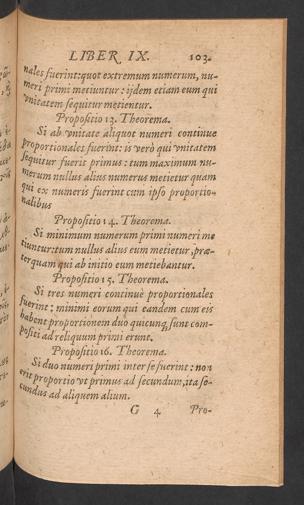 LIBER IX. 103.
nales fuerint: quot extremum numerum, nu-
meri primi metiuntur: ijdem etiam eum qui
vnitatem sequitur metientur.
Propositio 13. Theorema.
Si ab vnitate aliquot numeri continue
proportionales fuerint: is verò qui vnitatem
sequitur fuerit primus: tum maximum nu-
merum nullus alius numerus metietur quam
qui ex numeris fuerint cum ipso proportio-
nalibus
Propositio 14. Theorema.
Si minimum numerum primi numeri me
tiuntur: tum nullus alius eum metietur, præ-
terquam qui ab initio eum metiebantur.
Propositio 15. Theorema.
Si tres numeri continuè proportionales
fuerint; minimi eorum qui eandem cum eis
habent proportionem duo quicunq, sunt com-
positi ad reliquum primi erunt.
Propositio 16. Theorema.
Si duo numeri primi inter se fuerint: non
erit proportio vt primus ad secundum, ita se-
cundus ad aliquem alium.
G 4 Pro-